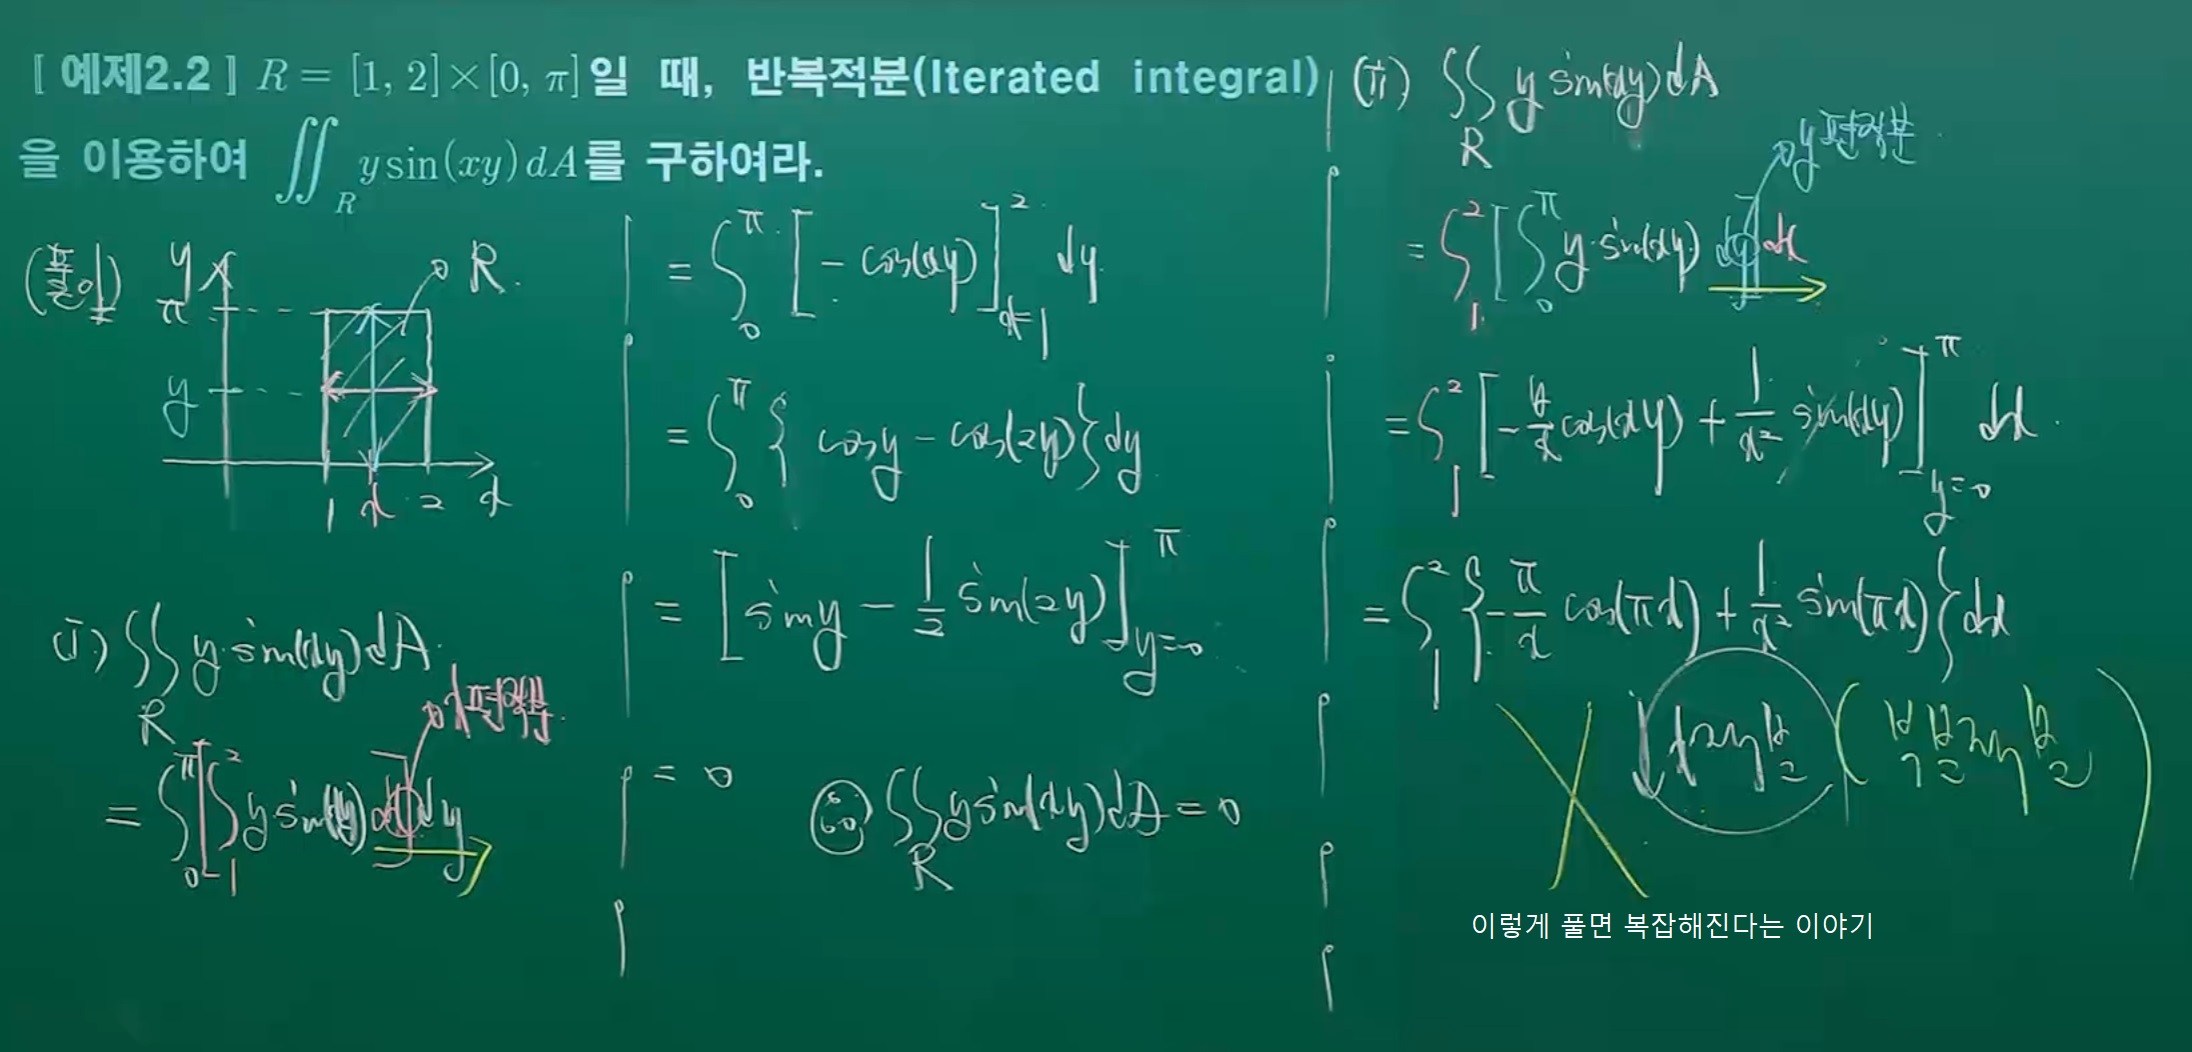 〚 예제2.2 〛 R = [1, 2]×[0, π]일 때, 반복적분(Iterated integral)
을 이용하여 ∬_R y sin(xy) dA를 구하여라.
(풀이)
y
R.
π
y
1 x 2 x
(i) ∬_R y sin(xy) dA.
x편적분.
= ∫_0^π [∫_1^2 y sin(xy) dx] dy
= ∫_0^π [-cos(xy)]_{x=1}^2 dy
= ∫_0^π { cos y - cos(2y) } dy
= [sin y - 1/2 sin(2y)]_{y=0}^π
= 0
∴ ∬_R y sin(xy) dA = 0
(ii) ∬_R y sin(xy) dA
y편적분.
= ∫_1^2 [∫_0^π y sin(xy) dy] dx
= ∫_1^2 [-y/x cos(xy) + 1/x² sin(xy)]_{y=0}^π dx.
= ∫_1^2 {-π/x cos(πx) + 1/x² sin(πx)} dx
(부분적분)
이렇게 풀면 복잡해진다는 이야기